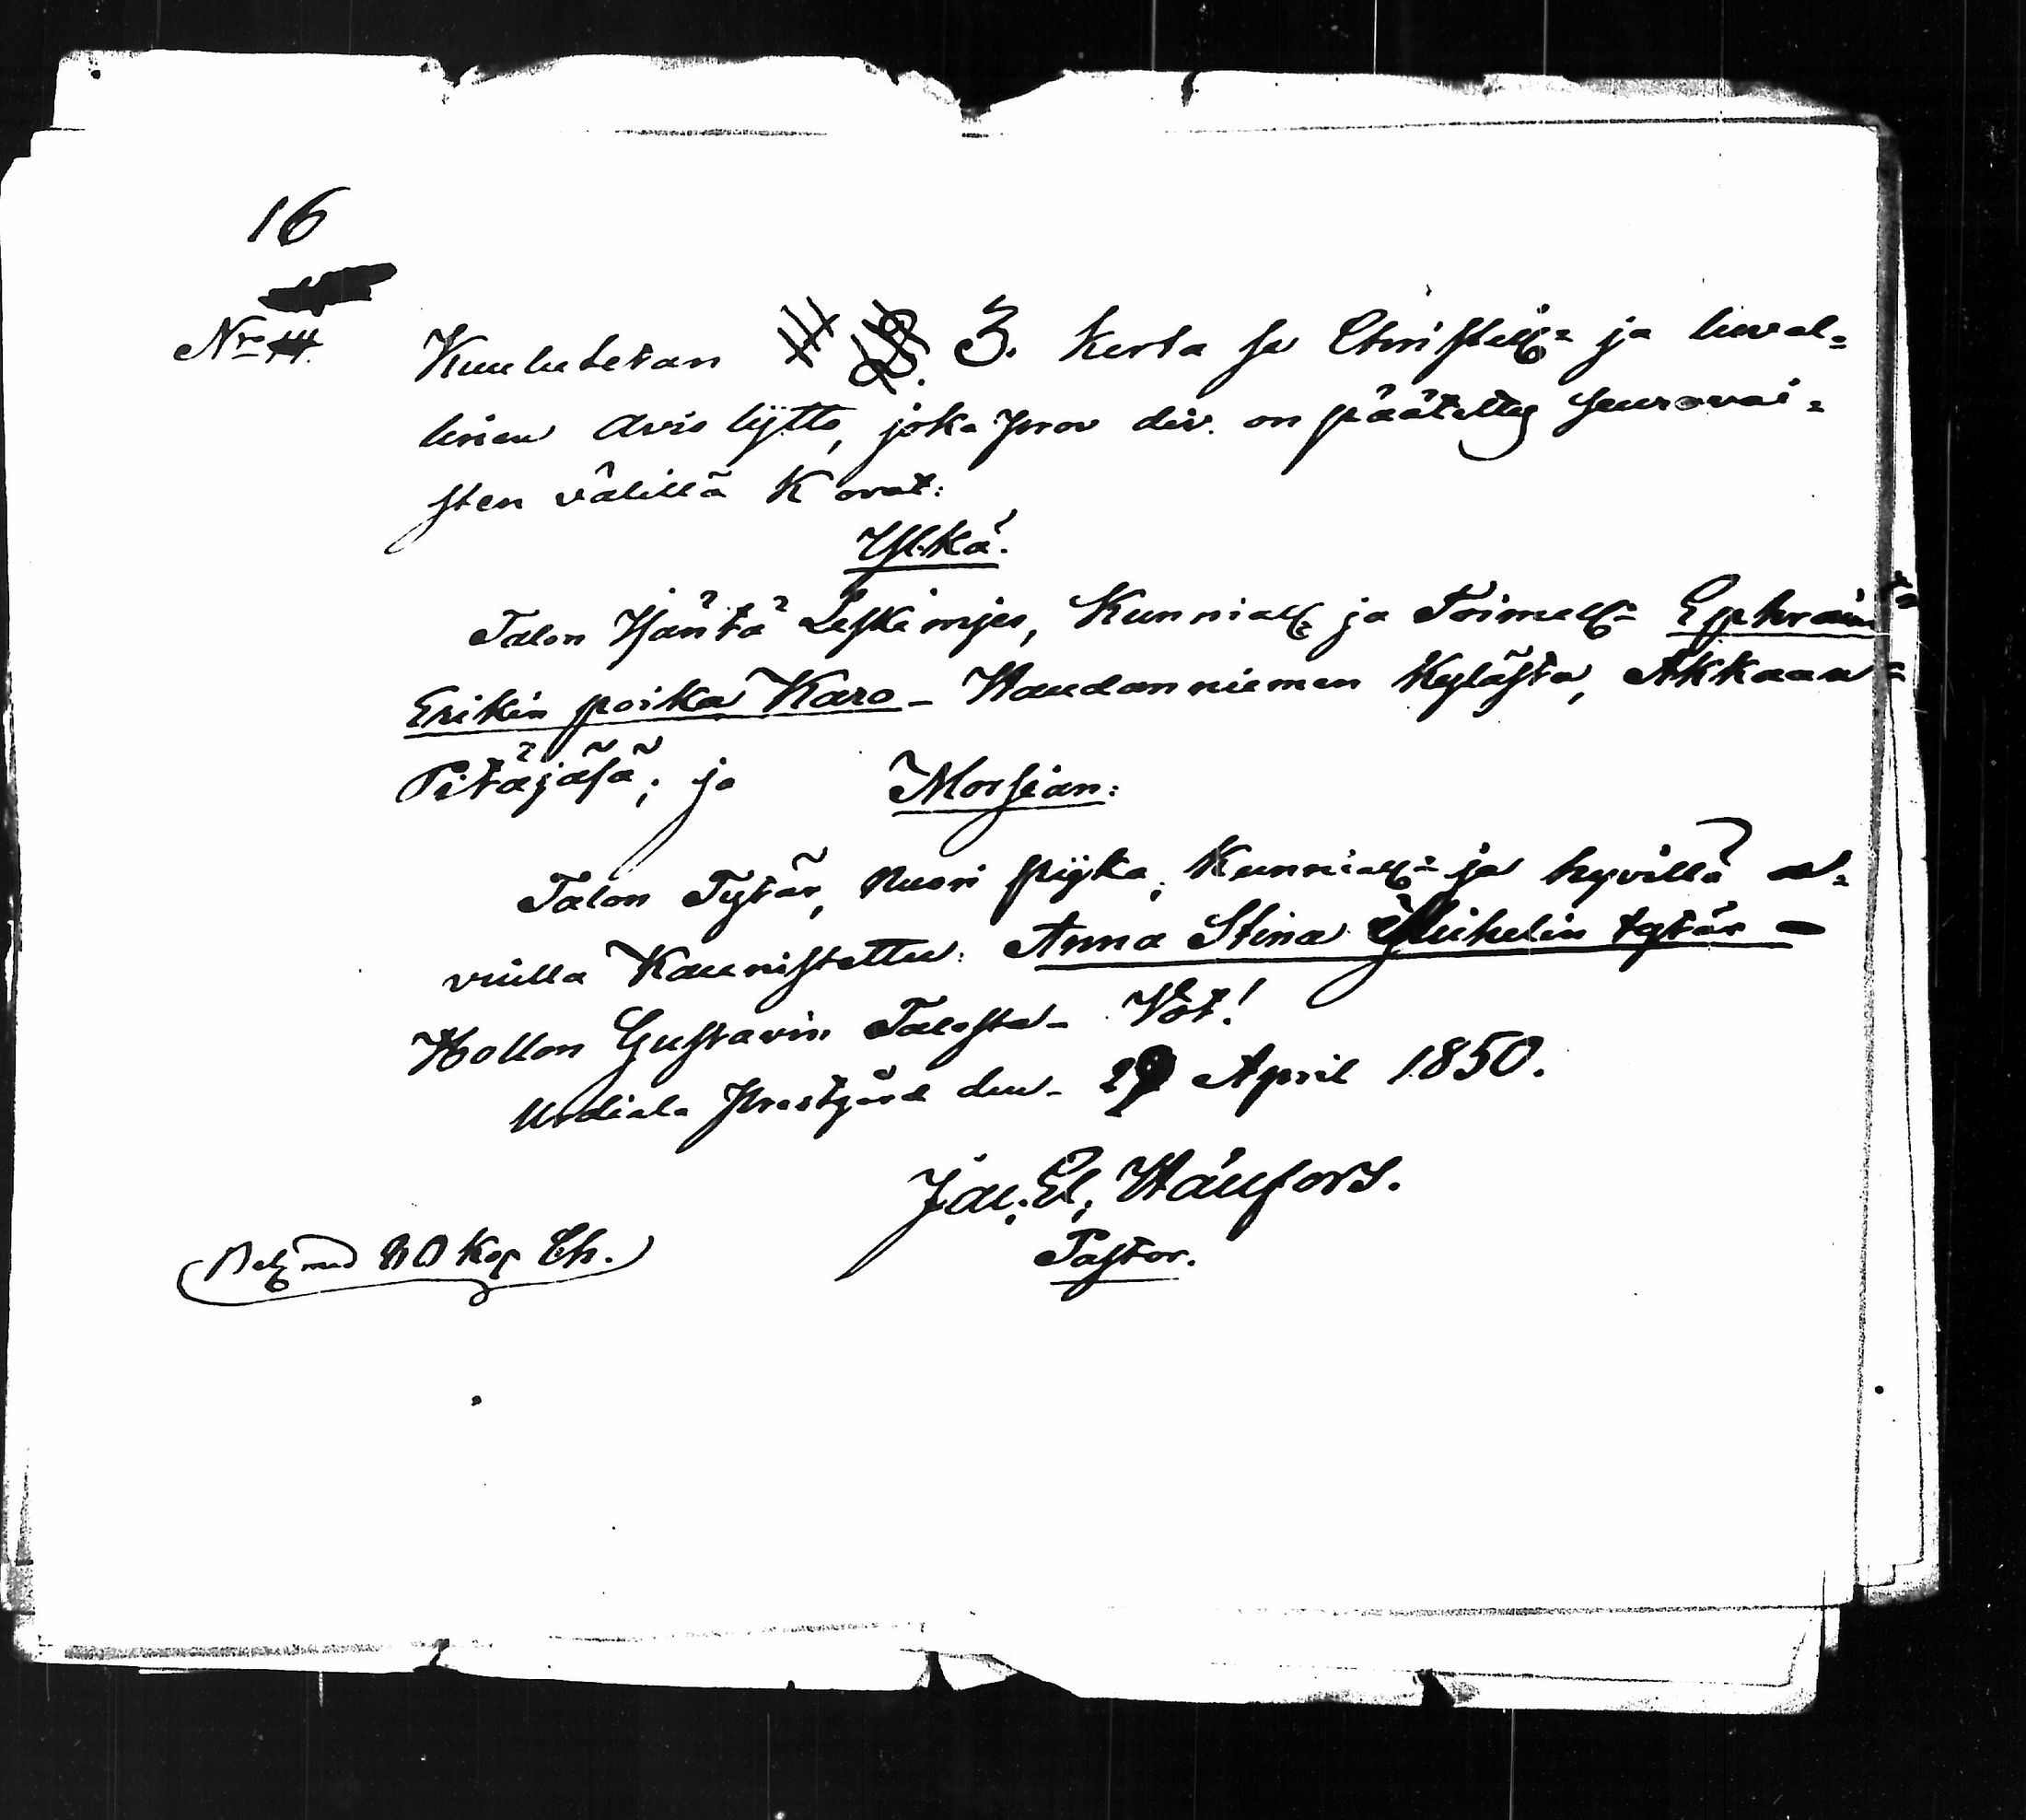 16
Nro
Kuulutetan 3. Kerta se Christill= ja luval=
linen Avio lijtto, joka prov div. on päätetty seuravai=
sten välillä Kovat:
Ylkä.
Talon Isäntä Leski mjes, Kunniall= ja Toimell= Ephraim
Erikin poika Karo – Haudanniemen Kylästä, Akkaan=
Pitäjäsä; ja Morsian:
Talon Tytär, nuori pijka, Kunniall= ja hyvillä a=
vuilla Kaunistettu: Anna Stina Mihelin tytär –
Hollon Gustavin Talosta – Vot!
Urdiala Prestgård den – 29 April 1850.
Jac. El. Häufors.
Pastor.
Bel. med 20 Kop Ch.